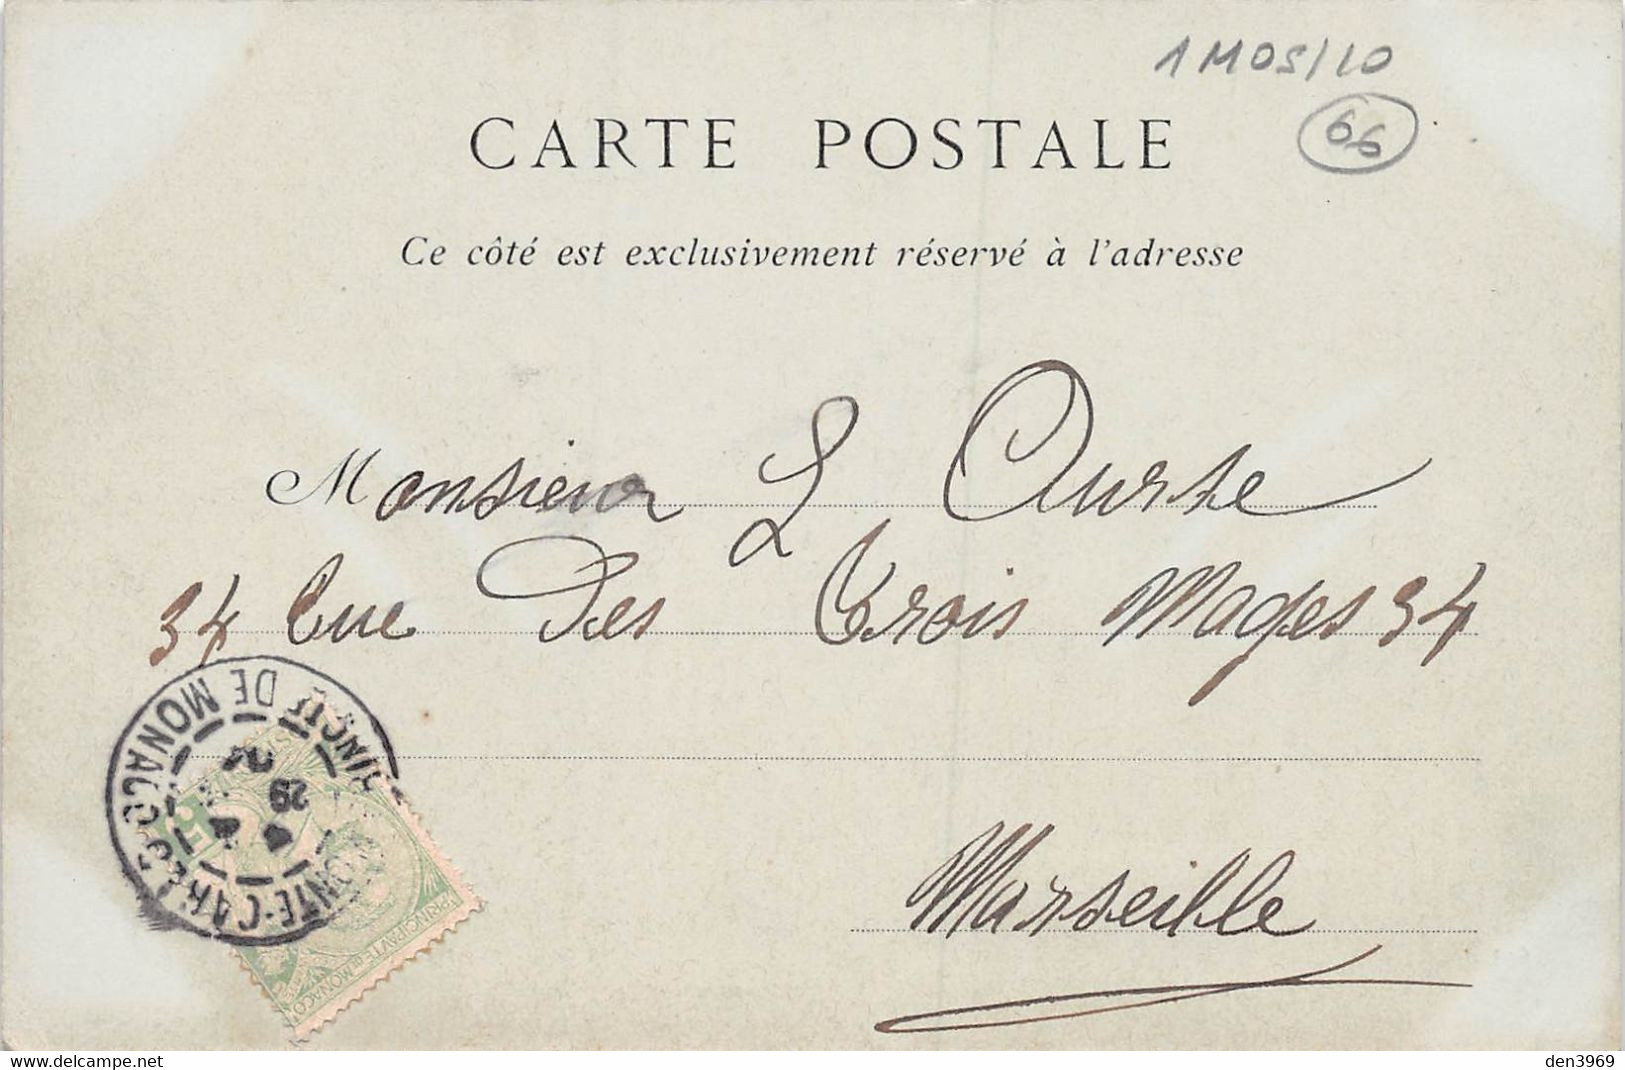 1 M05/10
66
CARTE POSTALE
Ce côté est exclusivement réservé à l'adresse
Monsieur L Ourse
34 Rue Des Trois Mages 34
PRINCIPTÉ DE MONACO
MONTE-CARLO
29
PRINCIPAVTÉ DE MONACO
Marseille
www.delcampe.net
den3969